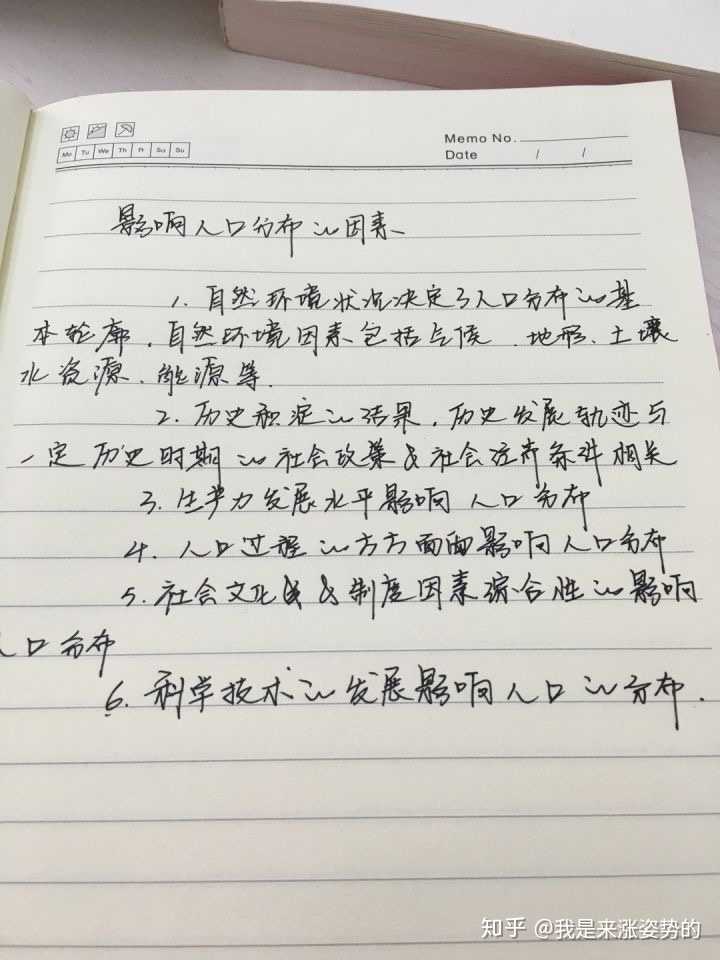 Memo No.
Mo Tu We Th Fr Sa Su
Date / /
影响人口分布的因素
1. 自然环境状况决定了人口分布的基
本轮廓，自然环境因素包括气候、地形、土壤
水资源、能源等.
2. 历史积淀的结果，历史发展轨迹与
一定历史时期的社会政策&社会经济条件相关
3. 生产力发展水平影响人口分布
4. 人口过程的方方面面影响人口分布
5. 社会文化&制度因素综合性的影响
人口分布
6. 科学技术的发展影响人口的分布.
知乎 @我是来涨姿势的